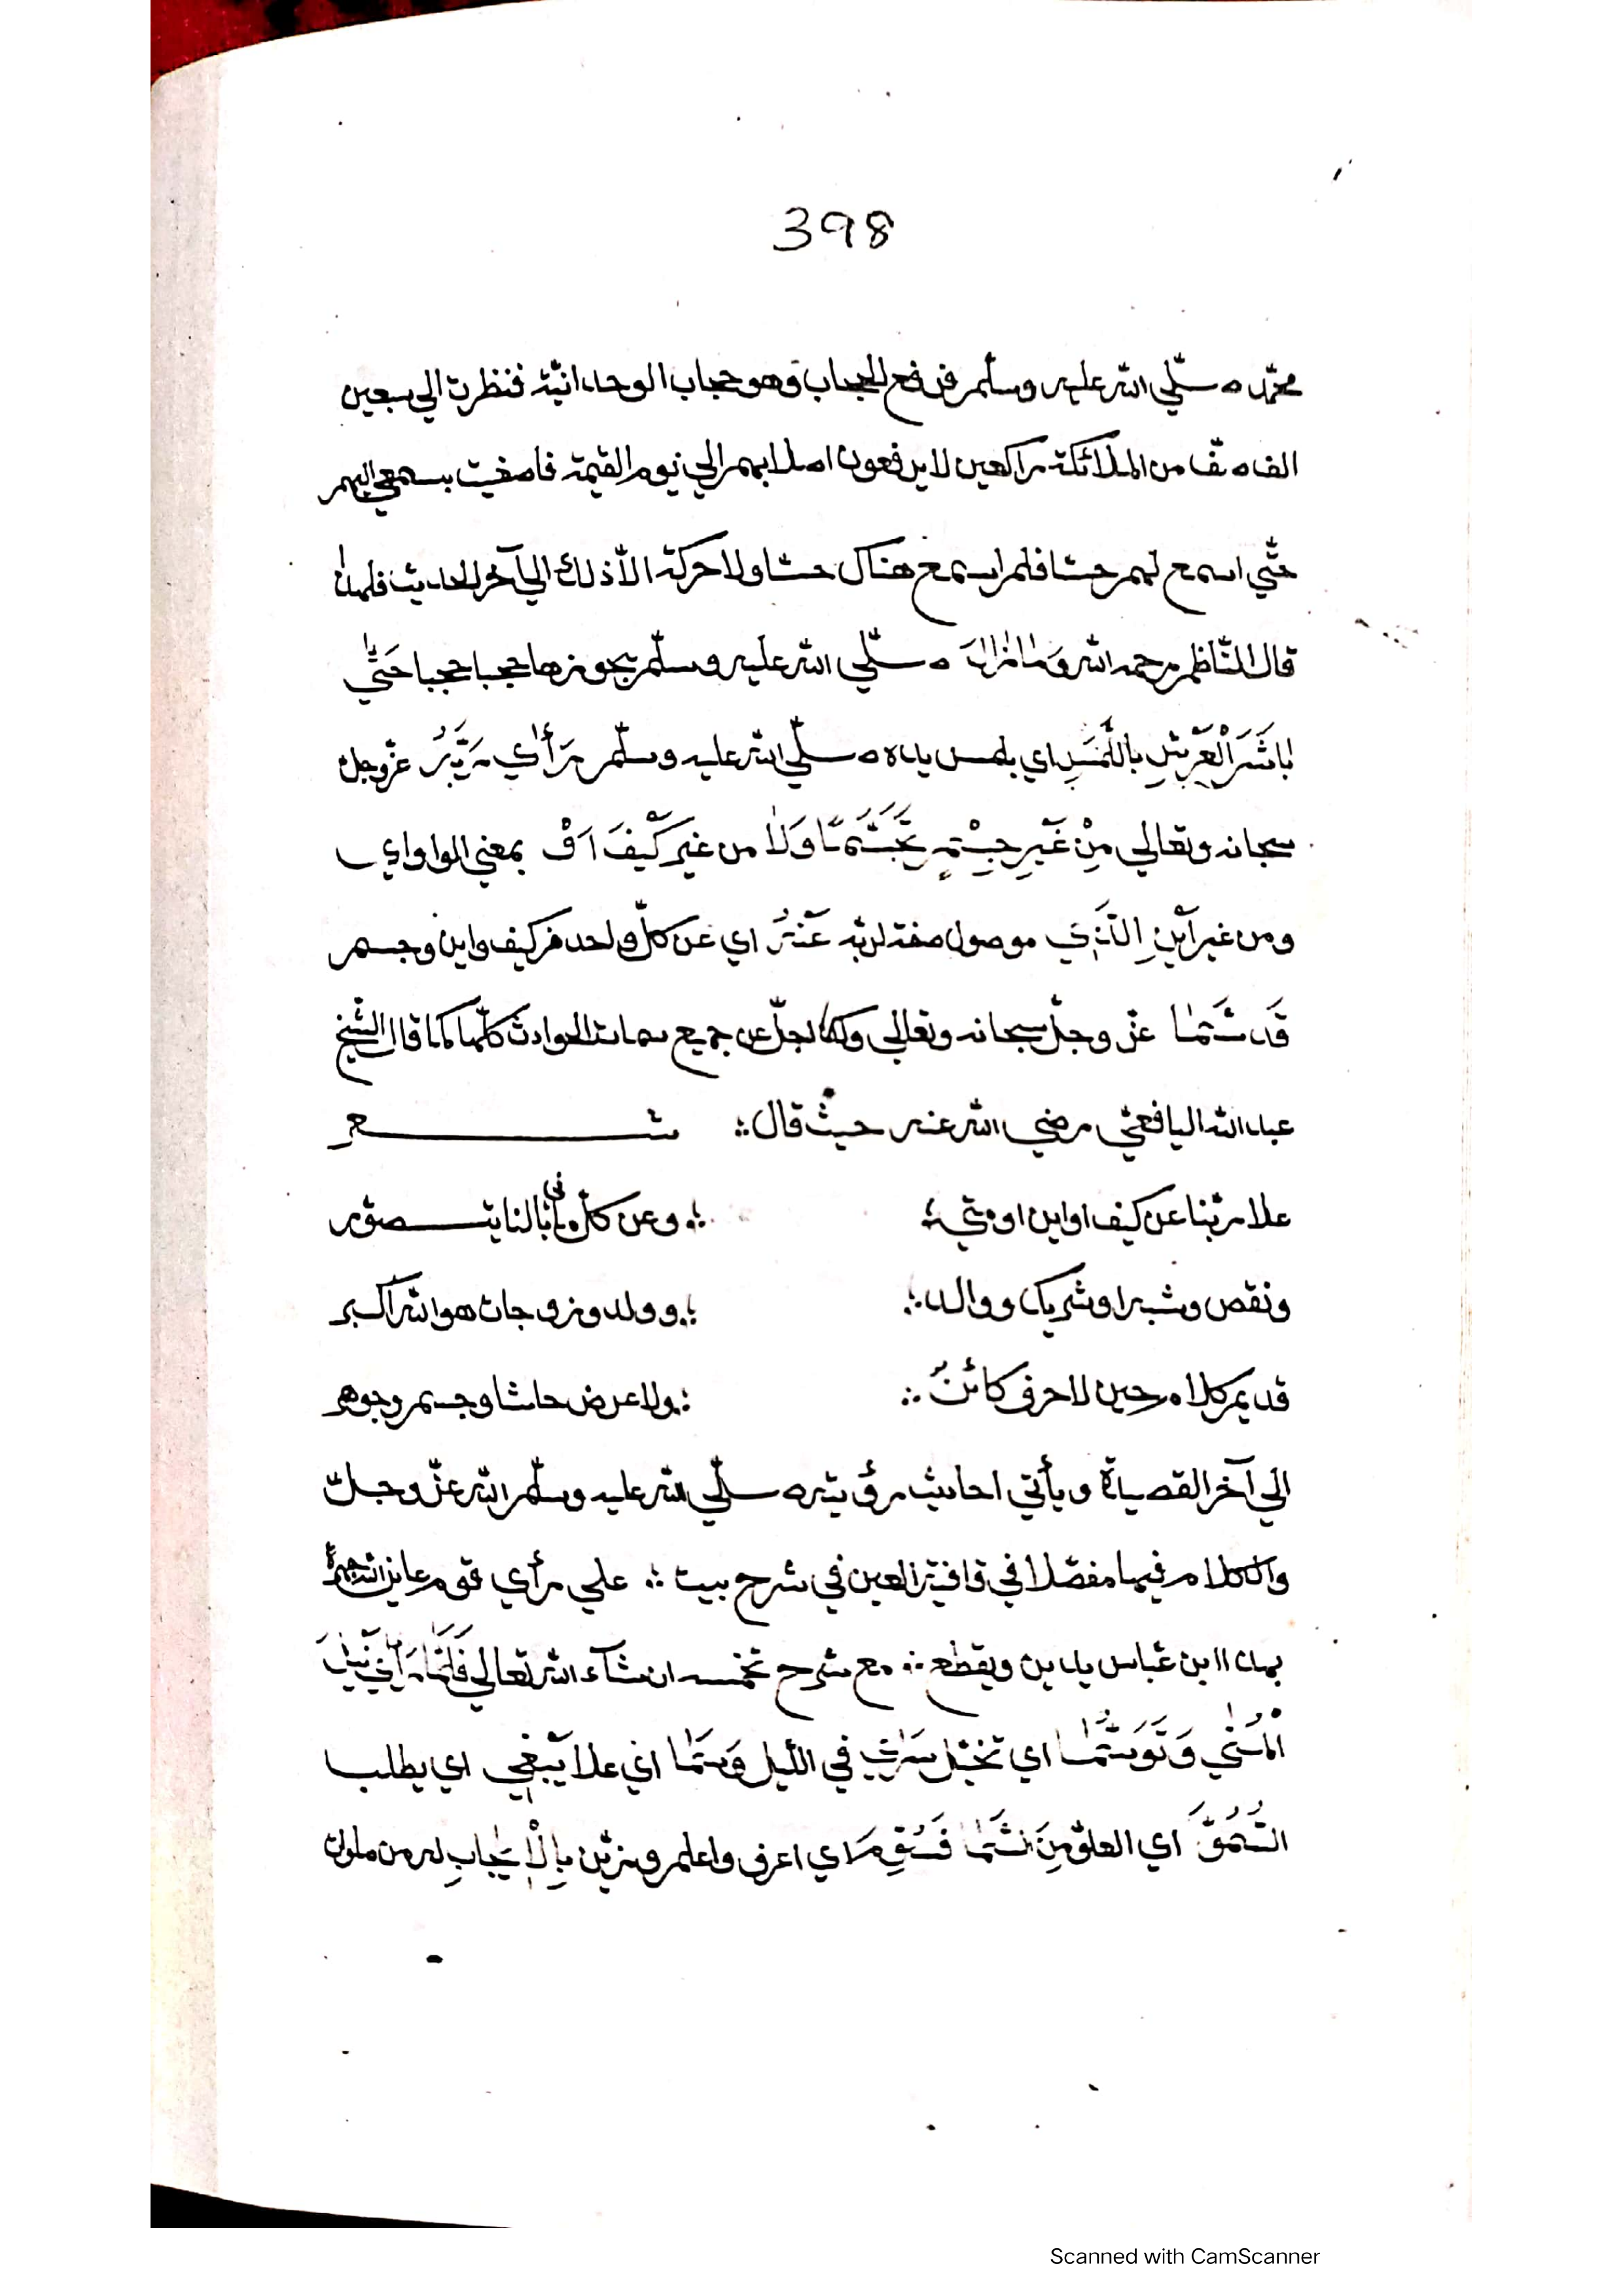 398
محمّد صلّي الله عليه وسلّم فرفع الحجاب وهو حجاب الوحدانيّة فنظرت الي سبعين
الف صفّ من الملائكة راكعين لا يرفعون اصلابهم الي يوم القيمة فاصغيت بسمعي اليهم
حتّي اسمع لهم حسّا فلم اسمع هناك حسّا ولا حركة الاّ ذلك الي آخر الحديث فلهذا
قال النّاظم رحمه الله وَمَا زالَ صلّي الله عليه وسلّم يجوزها حجبا حجبا حَتَّي
بَاشَرَ الْعَرْشِ بِاللَّمْسِ اي بلمس يده صلّي الله عليه وسلّم رَأَي رَبَّهُ عزّ وجل
سبحانه وتعالي مِنْ غَيْرِ جِسْمٍ تَجَسَّمًا وَلَا من غير كَيْفَ اَوْ بمعني الواو اي
ومن غير اَيْنِ الَّذِي موصول صفة لربّه عَنْهُ اي عن كلّ واحد من كيف واين وجسم
قَدْ سَمَا عزّ وجلّ سبحانه وتعالي وكذا جلّ عن جميع سمات الحوادث كلّها كما قال الشّيخ
عبد الله اليافعيّ رضي الله عنه حيث قال ؞ شعر
علا ربّنا عن كيف او اين او متي ؞ ؞ وعن كلّ ما في بالنا يتصوّر
ونقص وشبه او شريك ووالد ؞ ؞ وولد وزوجات هو الله اكبر
قديم كلام حين لا حرف كائنٌ ؞ ؞ ولا عرض حاشا وجسم وجوهر
الي آخر القصيدة ويأتي احاديث رؤيته صلّي الله عليه وسلّم الله عزّ وجلّ
والكلام فيها مفصّلا في قافية العين في شرح بيت ؞ علي رأي قوم عاين الله جهرة
بهذا ابن عبّاس يدين ويقطع ؞ مع شرح تخمسه ان شآء الله تعالي فَلَمَّا رَاَي نَيْلَ
الْمُنَي وَتَوَسَّمَا اي تخيّل سَرَي في اللّيل وَسَمَا اي علا يَبْغِي اي يطلب
السُّمُوَّ اي العلوّ مِنَ السَّمَا فَسُوِّمَ اي اعرف واعلم وزيّن بِالْاِيجَابِ له من ملوك
Scanned with CamScanner